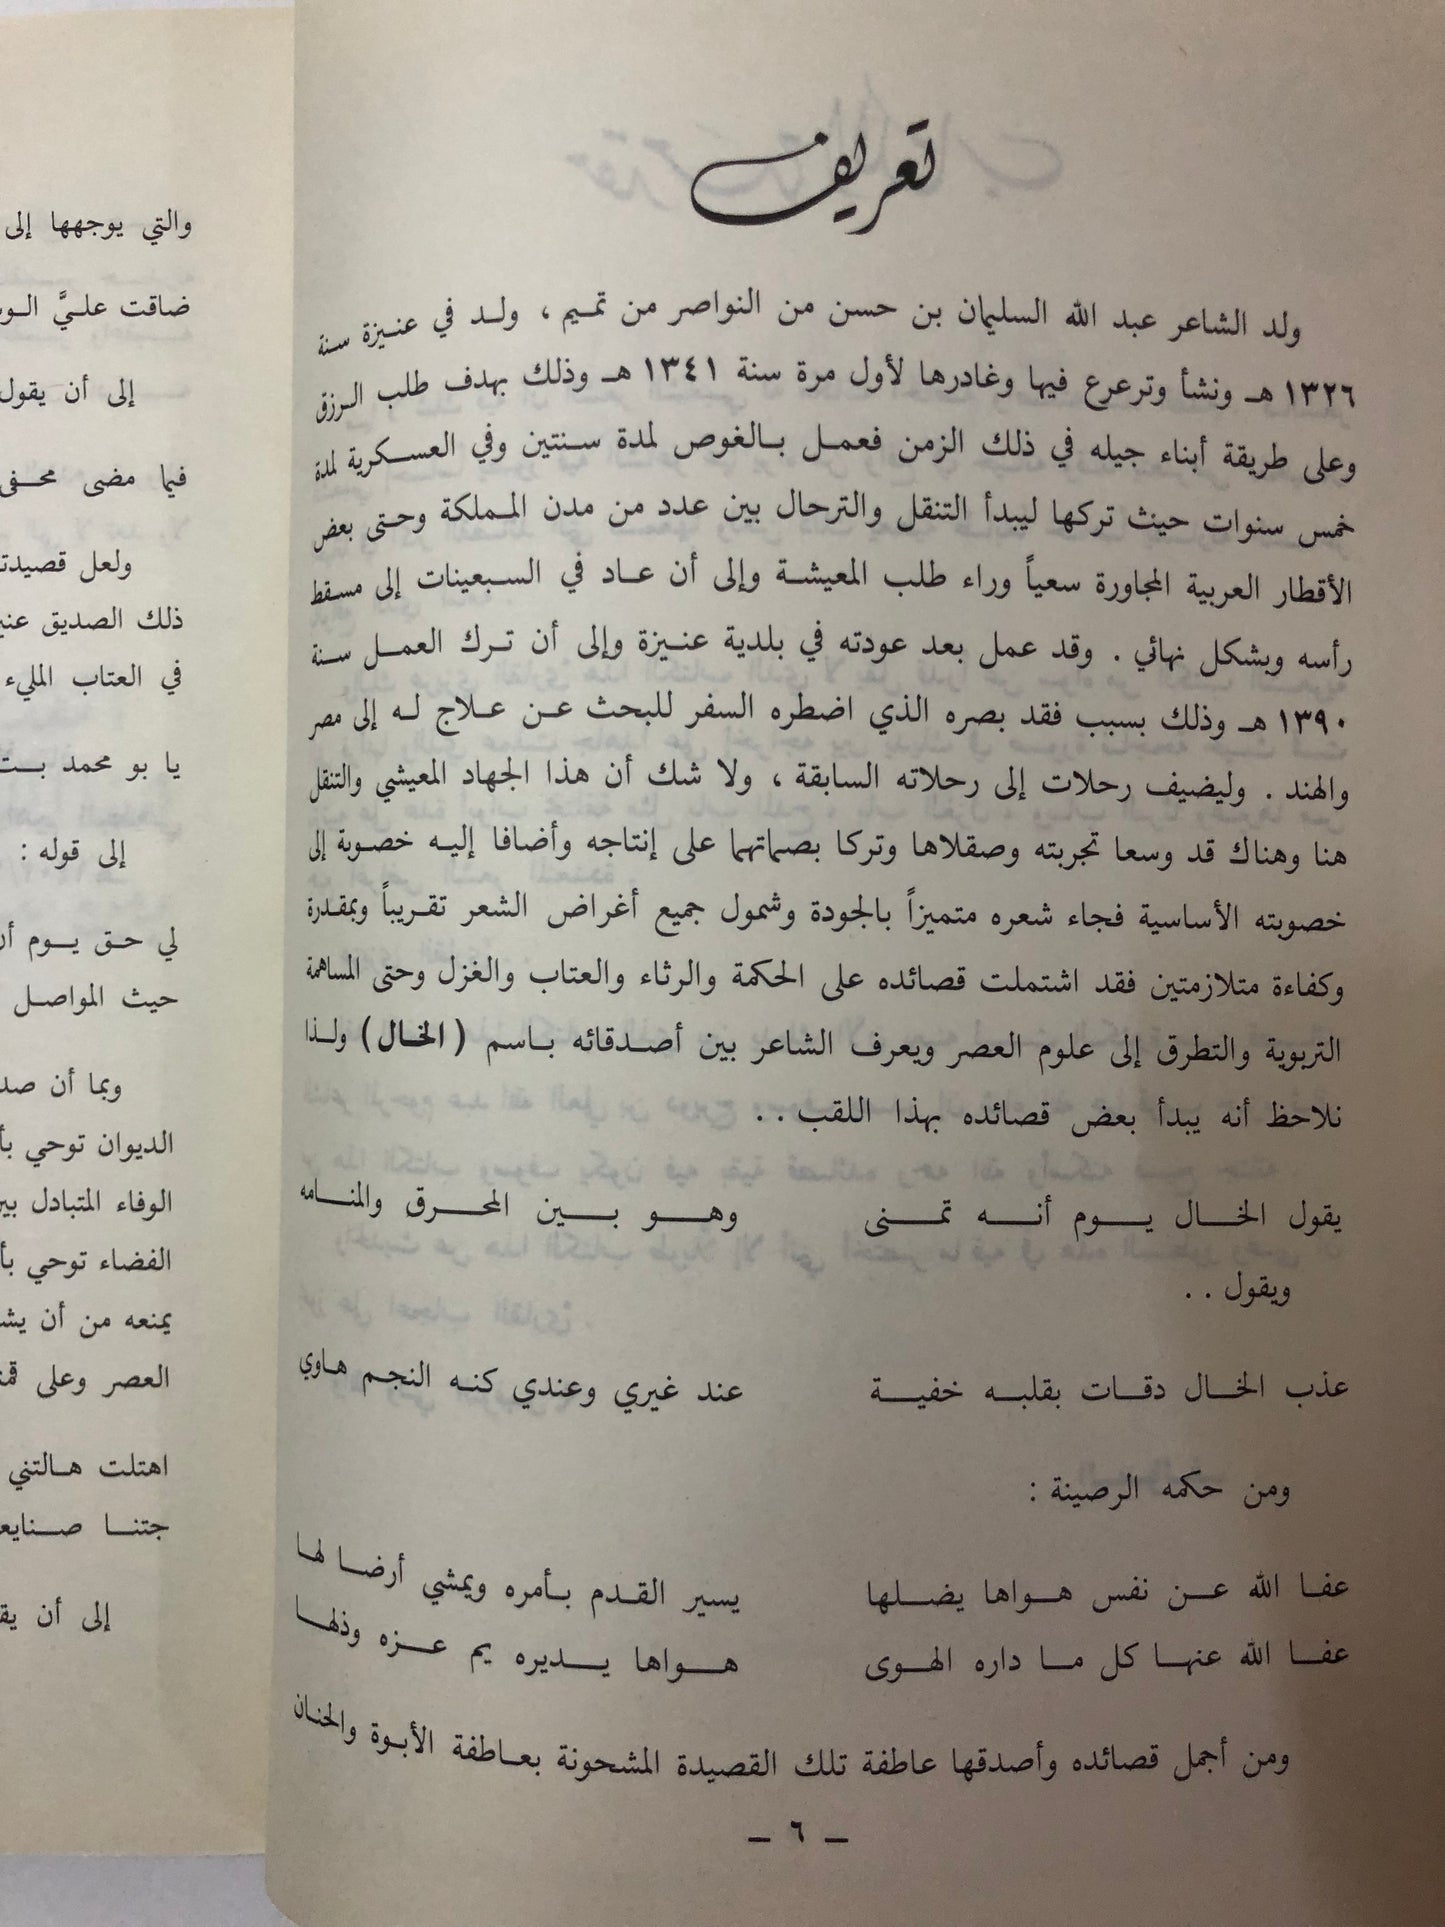 تعريف
ولد الشاعر عبد الله السليمان بن حسن من النواصر من تميم ، ولد في عنيزة سنة
١٣٢٦ هـ ونشأ وترعرع فيها وغادرها لأول مرة سنة ١٣٤١ هـ وذلك بهدف طلب الرزق
وعلى طريقة أبناء جيله في ذلك الزمن فعمل بالغوص لمدة سنتين وفي العسكرية لمدة
خمس سنوات حيث تركها ليبدأ التنقل والترحال بين عدد من مدن المملكة وحتى بعض
الأقطار العربية المجاورة سعياً وراء طلب المعيشة وإلى أن عاد في السبعينات إلى مسقط
رأسه وبشكل نهائي . وقد عمل بعد عودته في بلدية عنيزة وإلى أن ترك العمل سنة
١٣٩٠ هـ وذلك بسبب فقد بصره الذي اضطره السفر للبحث عن علاج له إلى مصر
والهند . وليضيف رحلات إلى رحلاته السابقة ، ولا شك أن هذا الجهاد المعيشي والتنقل
هنا وهناك قد وسعا تجربته وصقلاها وتركا بصماتهما على إنتاجه وأضافا إليه خصوبة إلى
خصوبته الأساسية فجاء شعره متميزاً بالجودة وشمول جميع أغراض الشعر تقريباً وبمقدرة
وكفاءة متلازمتين فقد اشتملت قصائده على الحكمة والرثاء والعتاب والغزل وحتى المساهمة
التربوية والتطرق إلى علوم العصر ويعرف الشاعر بين أصدقائه باسم (الخال) ولذا
نلاحظ أنه يبدأ بعض قصائده بهذا اللقب . .
يقول الخال يوم أنه تمنى وهو بين المحرق والمنامه
ويقول . .
عذب الخال دقات بقلبه خفية عند غيري وعندي كنه النجم هاوي
ومن حكمه الرصينة :
عفا الله عن نفس هواها يضلها يسير القدم بأمره ويمشي أرضا لها
عفا الله عنها كل ما داره الهوى هواها يديره يم عزه وذلها
ومن أجمل قصائده وأصدقها عاطفة تلك القصيدة المشحونة بعاطفة الأبوة والحنان
– ٦ –
والتي يوجهها إلى
ضاقت عليَّ
إلى أن يقول
فيما مضى
ولعل
ذلك الصديق
في العتاب المليء
يا بو محمد
إلى قوله :
لي حق يوم
حيث المواصل
وبما أن
الديوان توحي
الوفاء المتبادل
الفضاء توحي
يمنعه من أن
العصر وعلى
اهتلت هالتني
جتنا
إلى أن